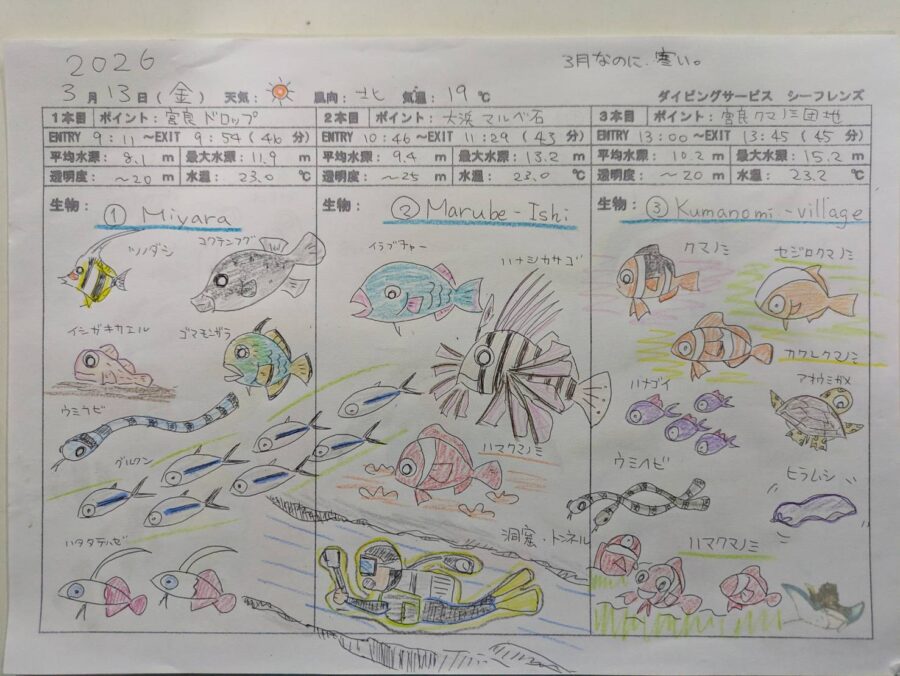 2026
3月なのに、寒い。
3月13日(金) 天気: 風向: 北 気温: 19℃ ダイビングサービス シーフレンズ
1本目 ポイント: 宮良ドロップ 2本目 ポイント: 大浜マルベ石 3本目 ポイント: 宮良クマノミ団地
ENTRY 9:11~EXIT 9:54(46分) ENTRY 10:46~EXIT 11:29(43分) ENTRY 13:00~EXIT 13:45(45分)
平均水深: 8.1 m 最大水深: 11.9 m 平均水深: 9.4 m 最大水深: 13.2 m 平均水深: 10.2 m 最大水深: 15.2 m
透明度: ~20 m 水温: 23.0 ℃ 透明度: ~25 m 水温: 23.0 ℃ 透明度: ~20 m 水温: 23.2 ℃
生物: ① Miyara
ツノダシ
コクテンフグ
イシガキカエル
ゴマモンガラ
ウミヘビ
グルクン
ハタタテハゼ
生物: ② Marube-Ishi
イラブチャー
ハナミカサゴ
ハマクマノミ
洞窟・トンネル
生物: ③ Kumanomi-village
クマノミ
セジロクマノミ
カクレクマノミ
ハナゴイ
アオウミガメ
ウミヘビ
ヒラムシ
ハマクマノミ